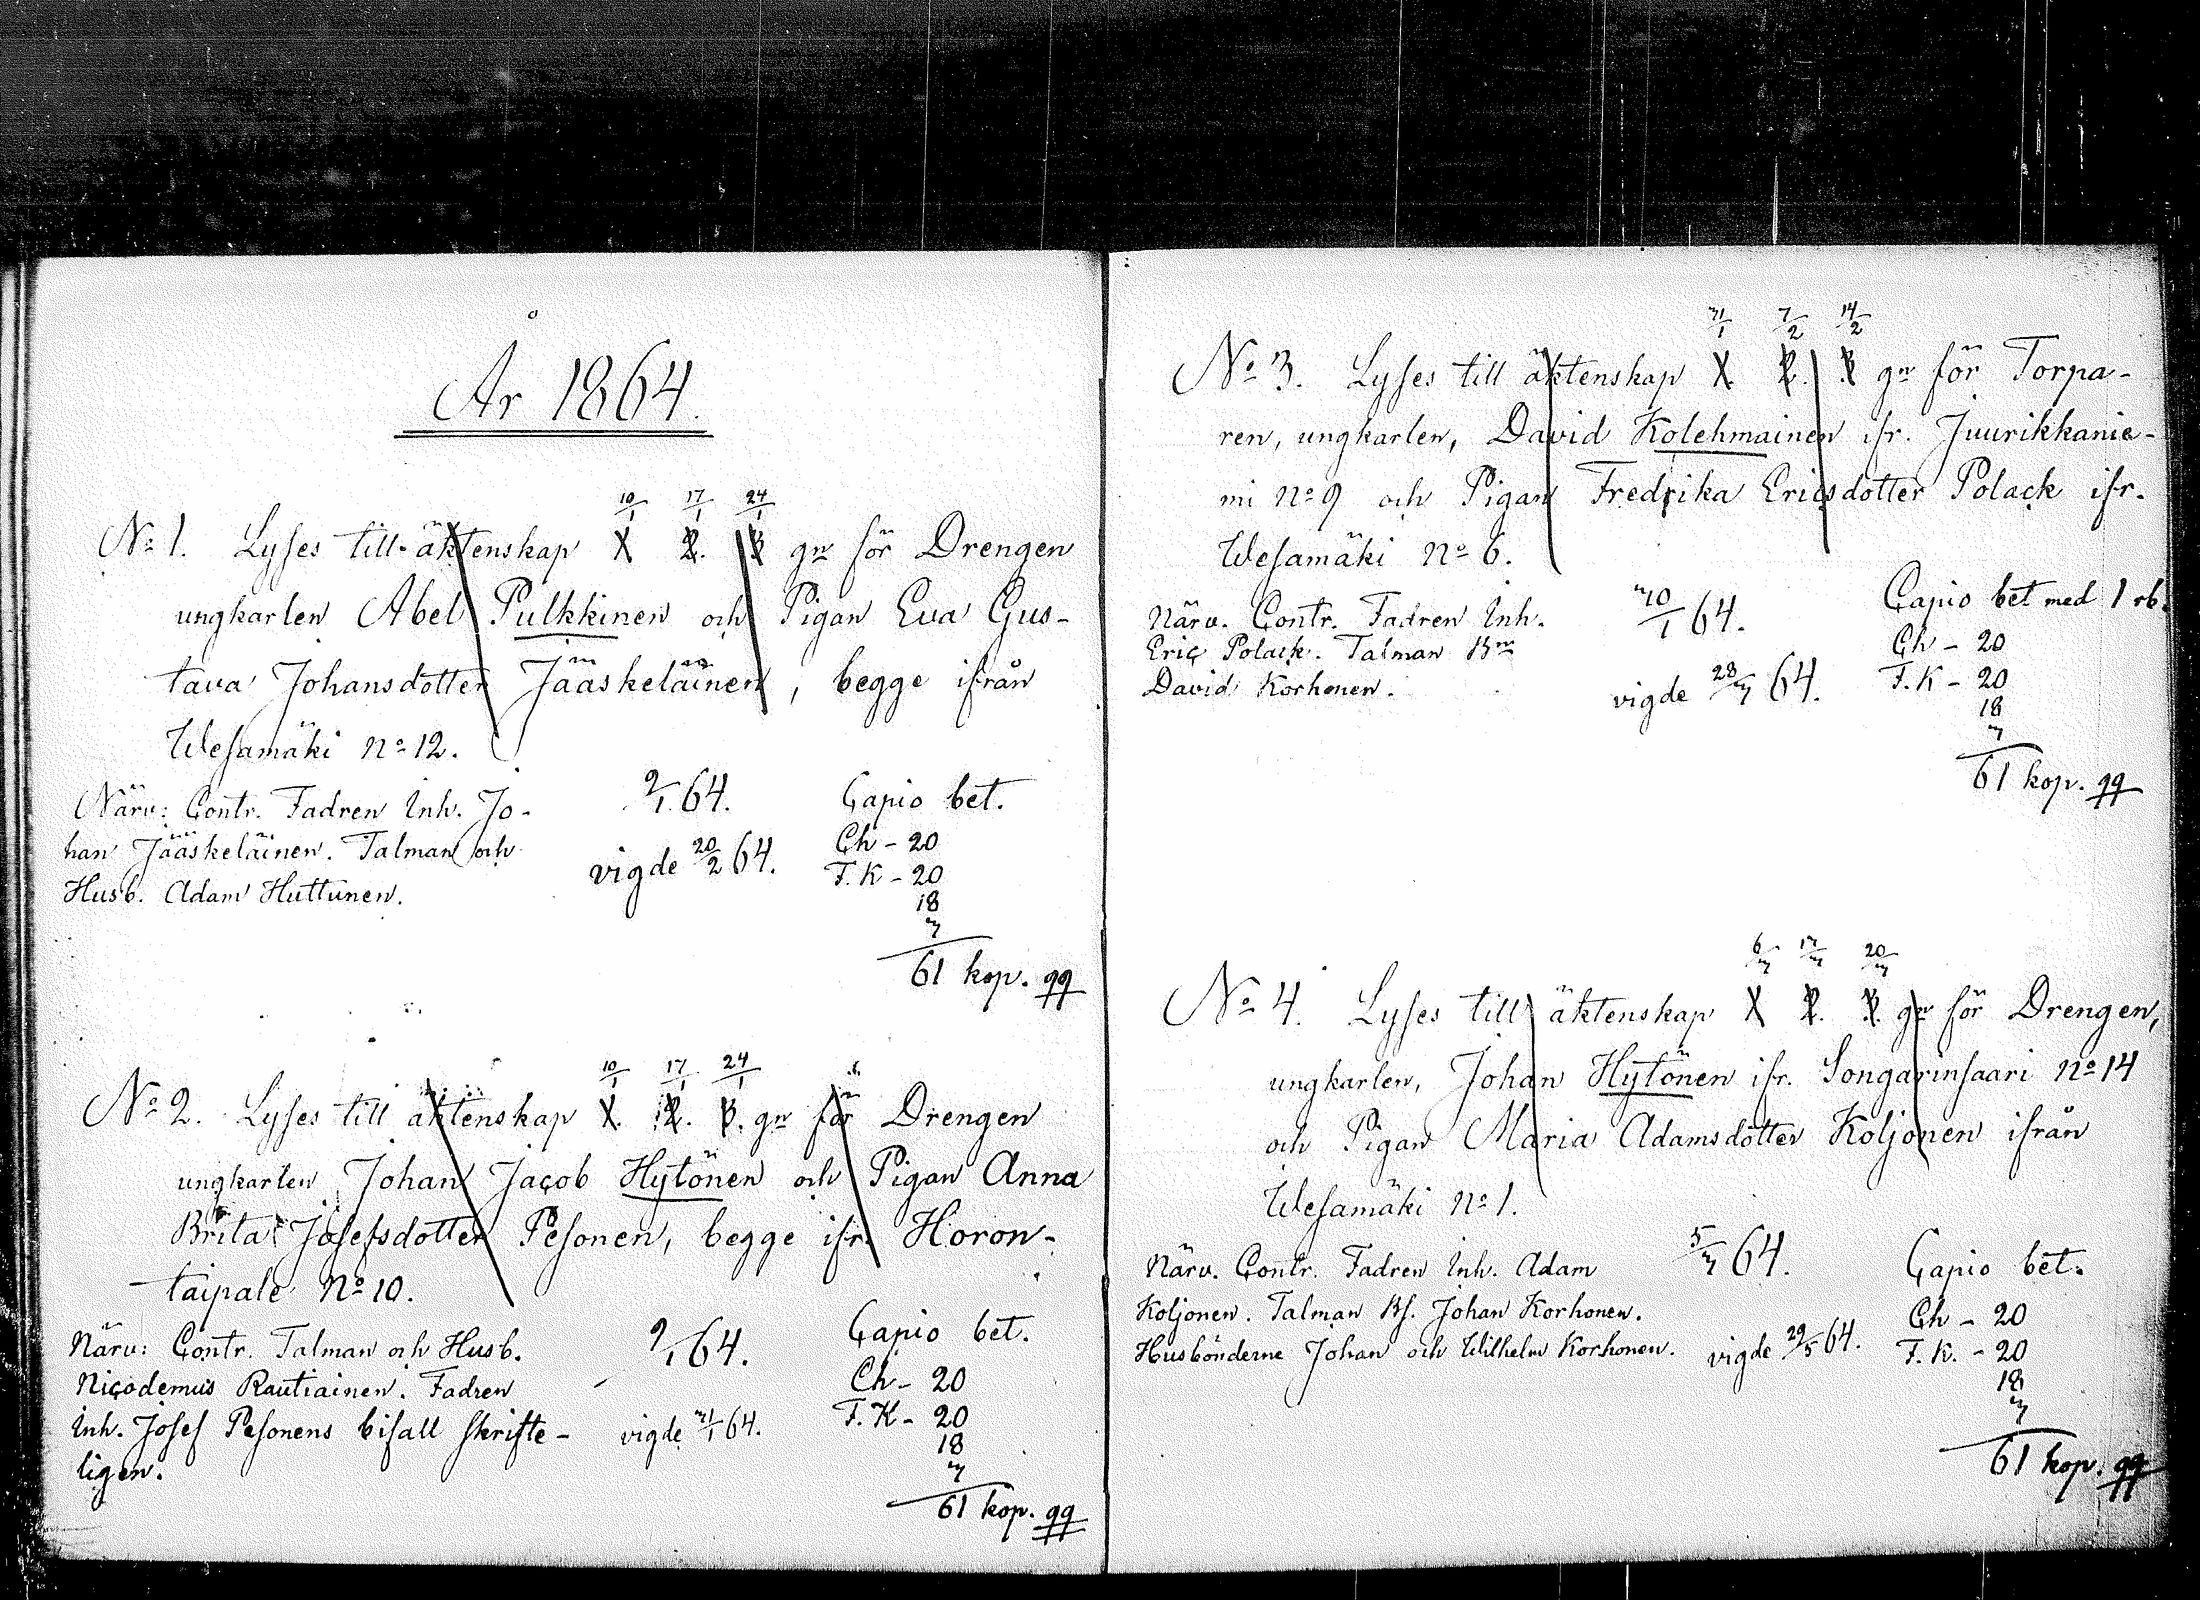 År 1864.
10/1 17/1 24/1
No 1. Lyses till äktenskap 1. 2. 3 gn för Drengen
ungkarlen Abel Pulkkinen och Pigan Eva Gus-
tava Johansdotter Jääskeläinen, begge ifrån
Wesamäki no 12.
Närv: Contr. Fadren Inh. Jo-
han Jääskeläinen. Talman och
Husb. Adam Huttunen.
9/1 64.
vigde 20/2 64.
Capio bet.
Ch - 20
F. K - 20
18
3
61 kop. qq
10/1 17/1 24/1
No 2. Lyses till äktenskap 1. 2. 3. gn för Drengen
ungkarlen Johan Jacob Hytönen och Pigan Anna
Brita Josefsdotter Pesonen, begge ifr. Horon-
taipale No 10.
Närv: Contr. Talman och Husb.
Nicodemus Rautiainen. Fadren
Inh. Josef Pesonens bifall skrifte-
ligen.
9/1 64.
vigde 31/1 64.
Capio bet.
Ch - 20
F. K - 20
18
3
61 kop. qq
31/1 7/2 14/2
No 3. Lyses till äktenskap 1. 2. 3 gn för Torpa-
ren, ungkarlen, David Kolehmainen ifr. Juurikkanie-
mi no 9 och Pigan Fredrika Ericsdotter Polack ifr.
Wesamäki no 6.
Närv. Contr. Fadren Inh.
Eric Polack. Talman Bn
David Korhonen.
30/1 64.
vigde 28/3 64.
Capio bet med 1 rb.
Ch - 20
F. K - 20
18
3
61 kop. qq
6/3 13/3 20/3
No 4. Lyses till äktenskap 1 2. 3. gn för Drengen,
ungkarlen, Johan Hytönen ifr. Songarinsaari no 14
och Pigan Maria Adamsdotter Koljonen ifrån
Wesamäki no 1.
Närv. Contr. Fadren Inh. Adam
Koljonen. Talman Bs. Johan Korhonen.
Husbönderne Johan och Wilhelm Korhonen.
5/3 64.
vigde 29/5 64.
Capio bet.
Ch - 20
F. K. - 20
18
3
61 kop. qq